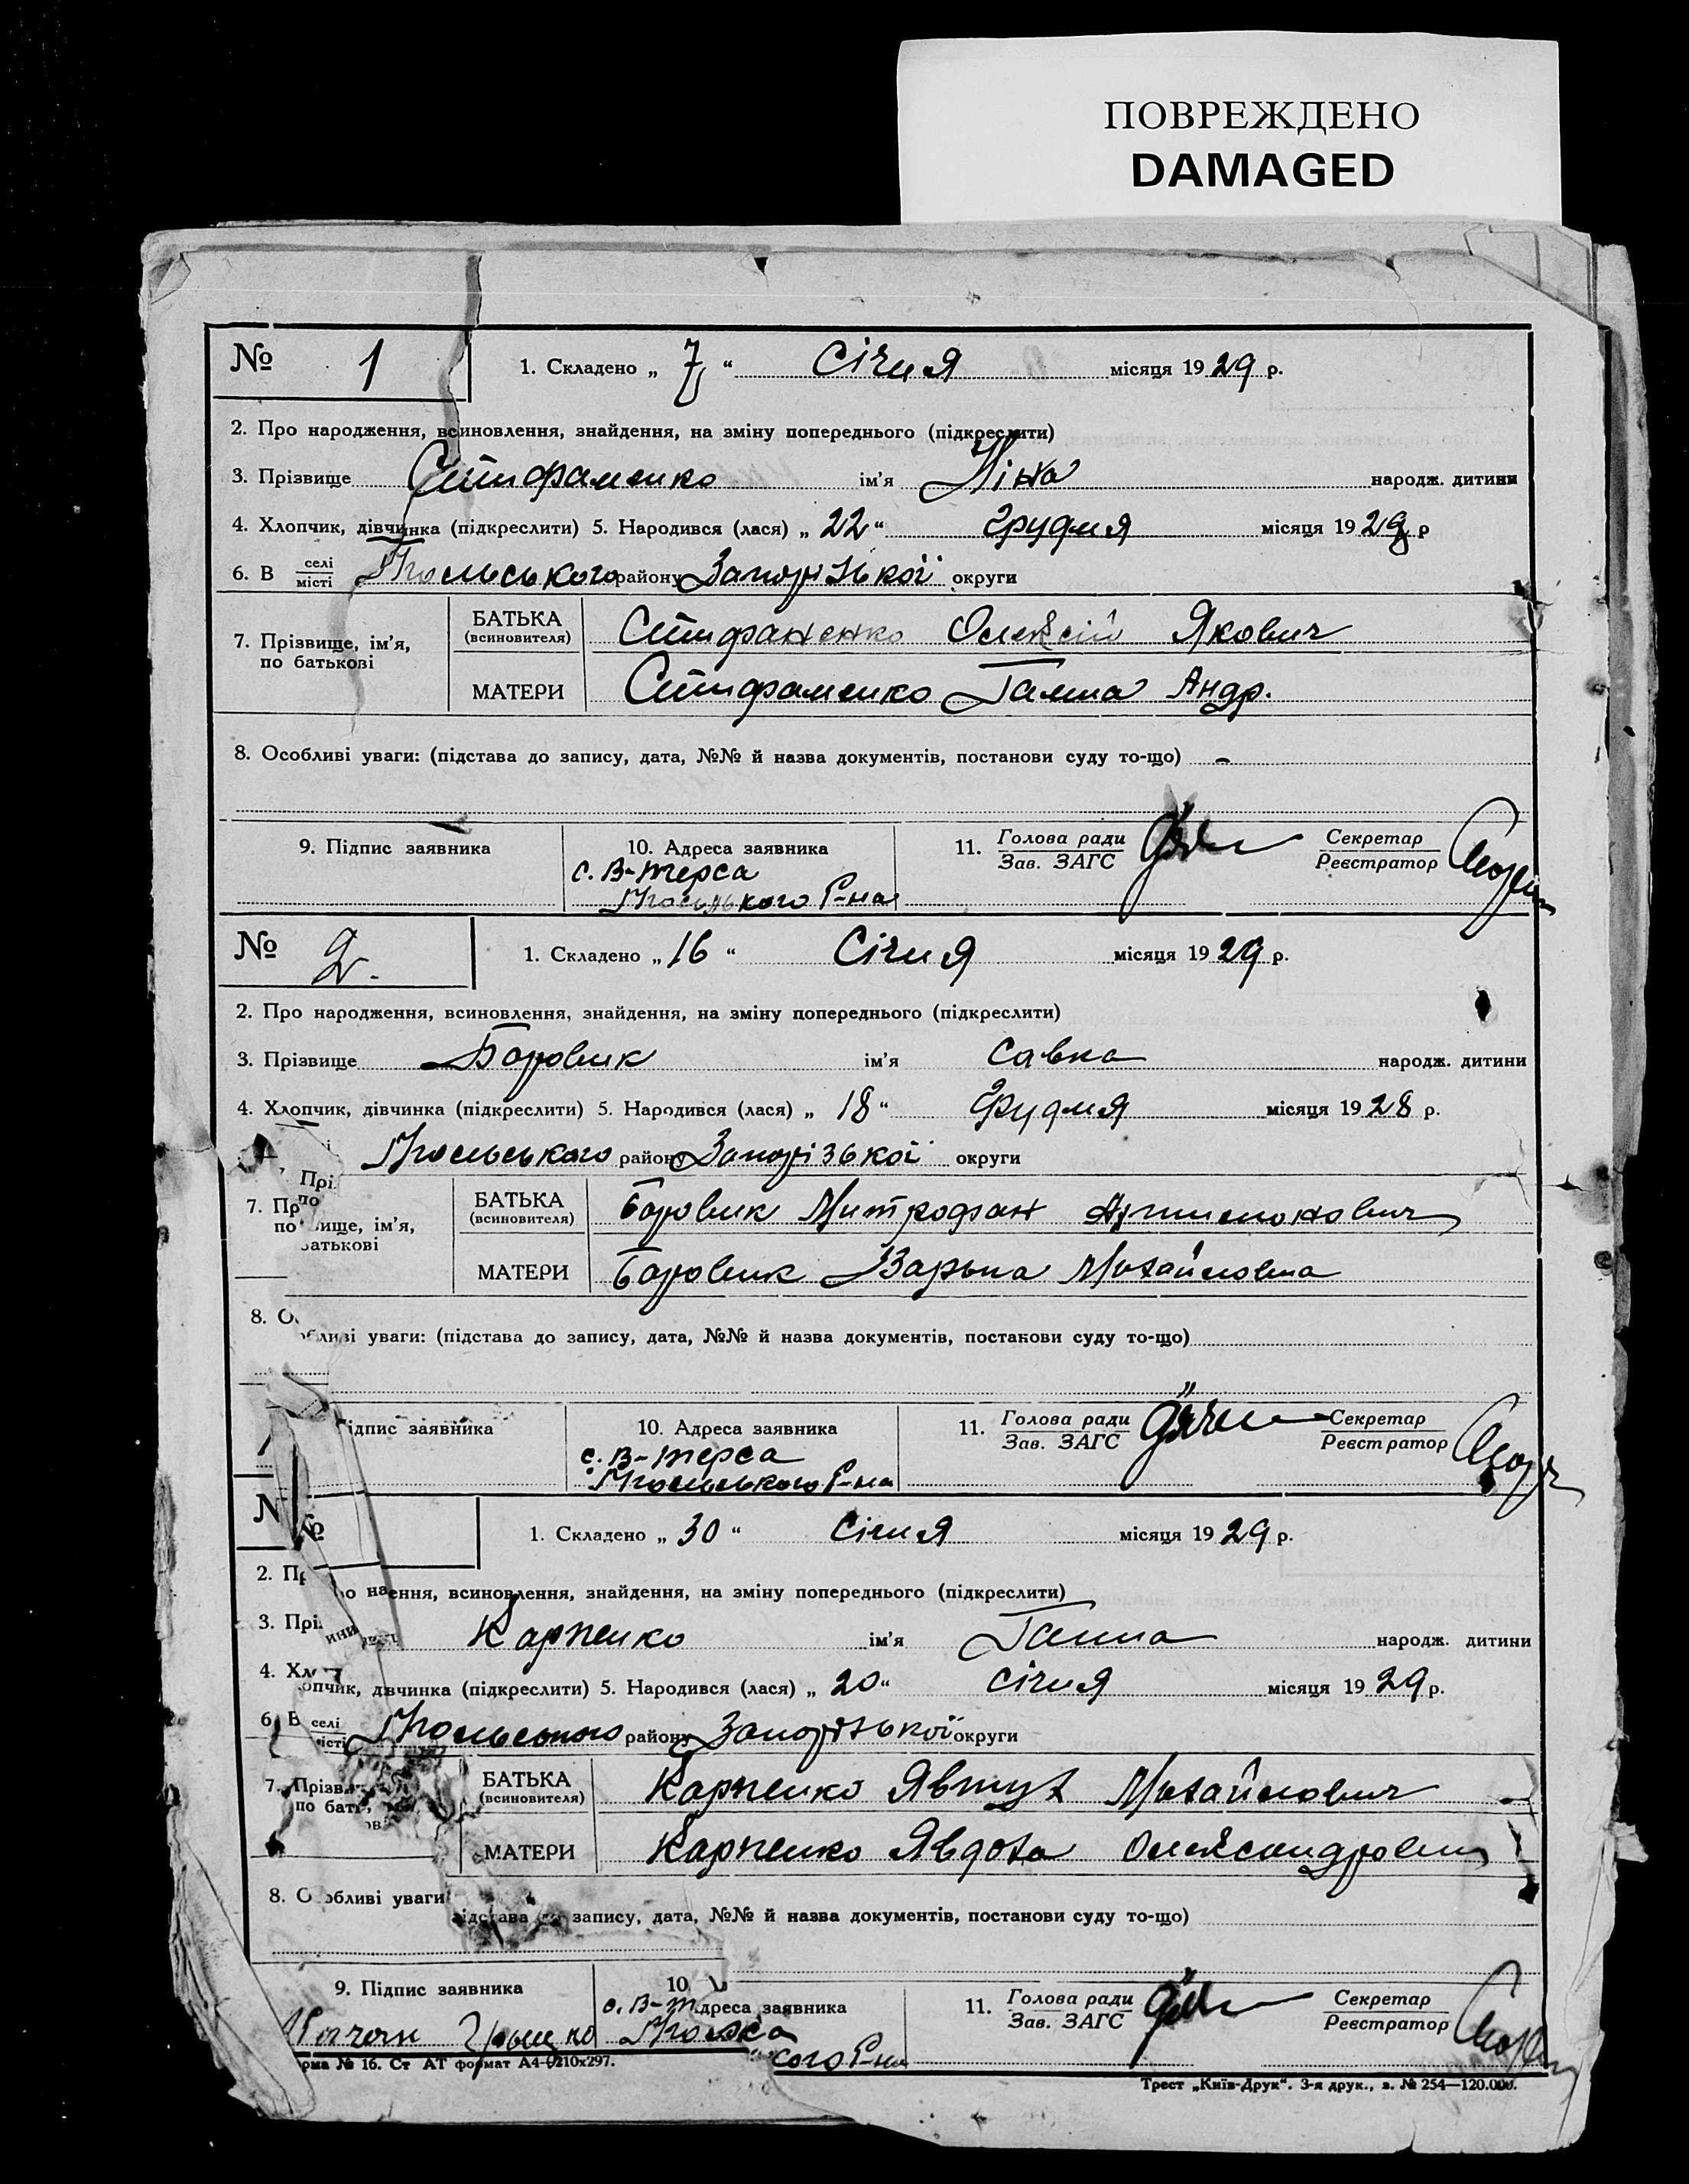 ПОВРЕЖДЕНО
DAMAGED
№ 1
1. Складено „ 7 “ Січня місяця 1929 р.
2. Про народження, всиновлення, знайдення, на зміну попереднього (підкреслити)
3. Прізвище ім'я Ніна народж. дитини
4. Хлопчик, дівчинка (підкреслити) 5. Народився (лася) „ 22 “ Грудня місяця 19 р
6. В селі місті району Запорізької округи
7. Прізвище, ім'я, по батькові
БАТЬКА (всиновителя) Олексій Якович
МАТЕРИ Ганна Андр.
8. Особливі уваги: (підстава до запису, дата, №№ й назва документів, постанови суду то-що) -
9. Підпис заявника
10. Адреса заявника
с. В-терса
Р-на
11. Голова ради Зав. ЗАГС
Секретар Реєстратор
№ 2.
1. Складено „ 16 “ Січня місяця 1929 р.
2. Про народження, всиновлення, знайдення, на зміну попереднього (підкреслити)
3. Прізвище Боровик ім'я Савка народж. дитини
4. Хлопчик, дівчинка (підкреслити) 5. Народився (лася) „ 18 “ Грудня місяця 1928 р.
району Запорізької округи
БАТЬКА (всиновителя) Боровик Митрофан
МАТЕРИ Боровик Михайловна
уваги: (підстава до запису, дата, №№ й назва документів, постанови суду то-що)
заявника
10. Адреса заявника
с. В-терса
Р-на
11. Голова ради Зав. ЗАГС
Секретар Реєстратор
№
1. Складено „ 30 “ Січня місяця 1929 р.
всиновлення, знайдення, на зміну попереднього (підкреслити)
Карпенко ім'я Ганна народж. дитини
дівчинка (підкреслити) 5. Народився (лася) „ 20 “ січня місяця 1929 р.
6. В селі району Запорізької округи
БАТЬКА (всиновителя) Карпенко Явтух Михайлович
МАТЕРИ Карпенко Явдоха
8. Особливі уваги запису, дата, №№ й назва документів, постанови суду то-що)
9. Підпис заявника
10. Адреса заявника
с. В-т
Р-на
11. Голова ради Зав. ЗАГС
Секретар Реєстратор
№ 16. Ст АТ формат А4—210х297.
Трест „Київ-Друк“. 3-я друк., з. № 254—120.000.